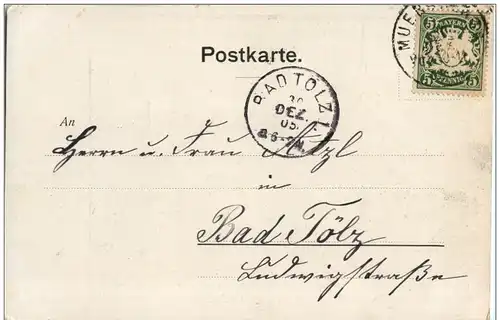 Postkarte.
MUE
5 BAYERN 5
5 PFENNIG 5
BAD TÖLZ I.
30
DEZ.
05.
An
Herrn u. Frau
in
Bad Tölz
Ludwigstraße